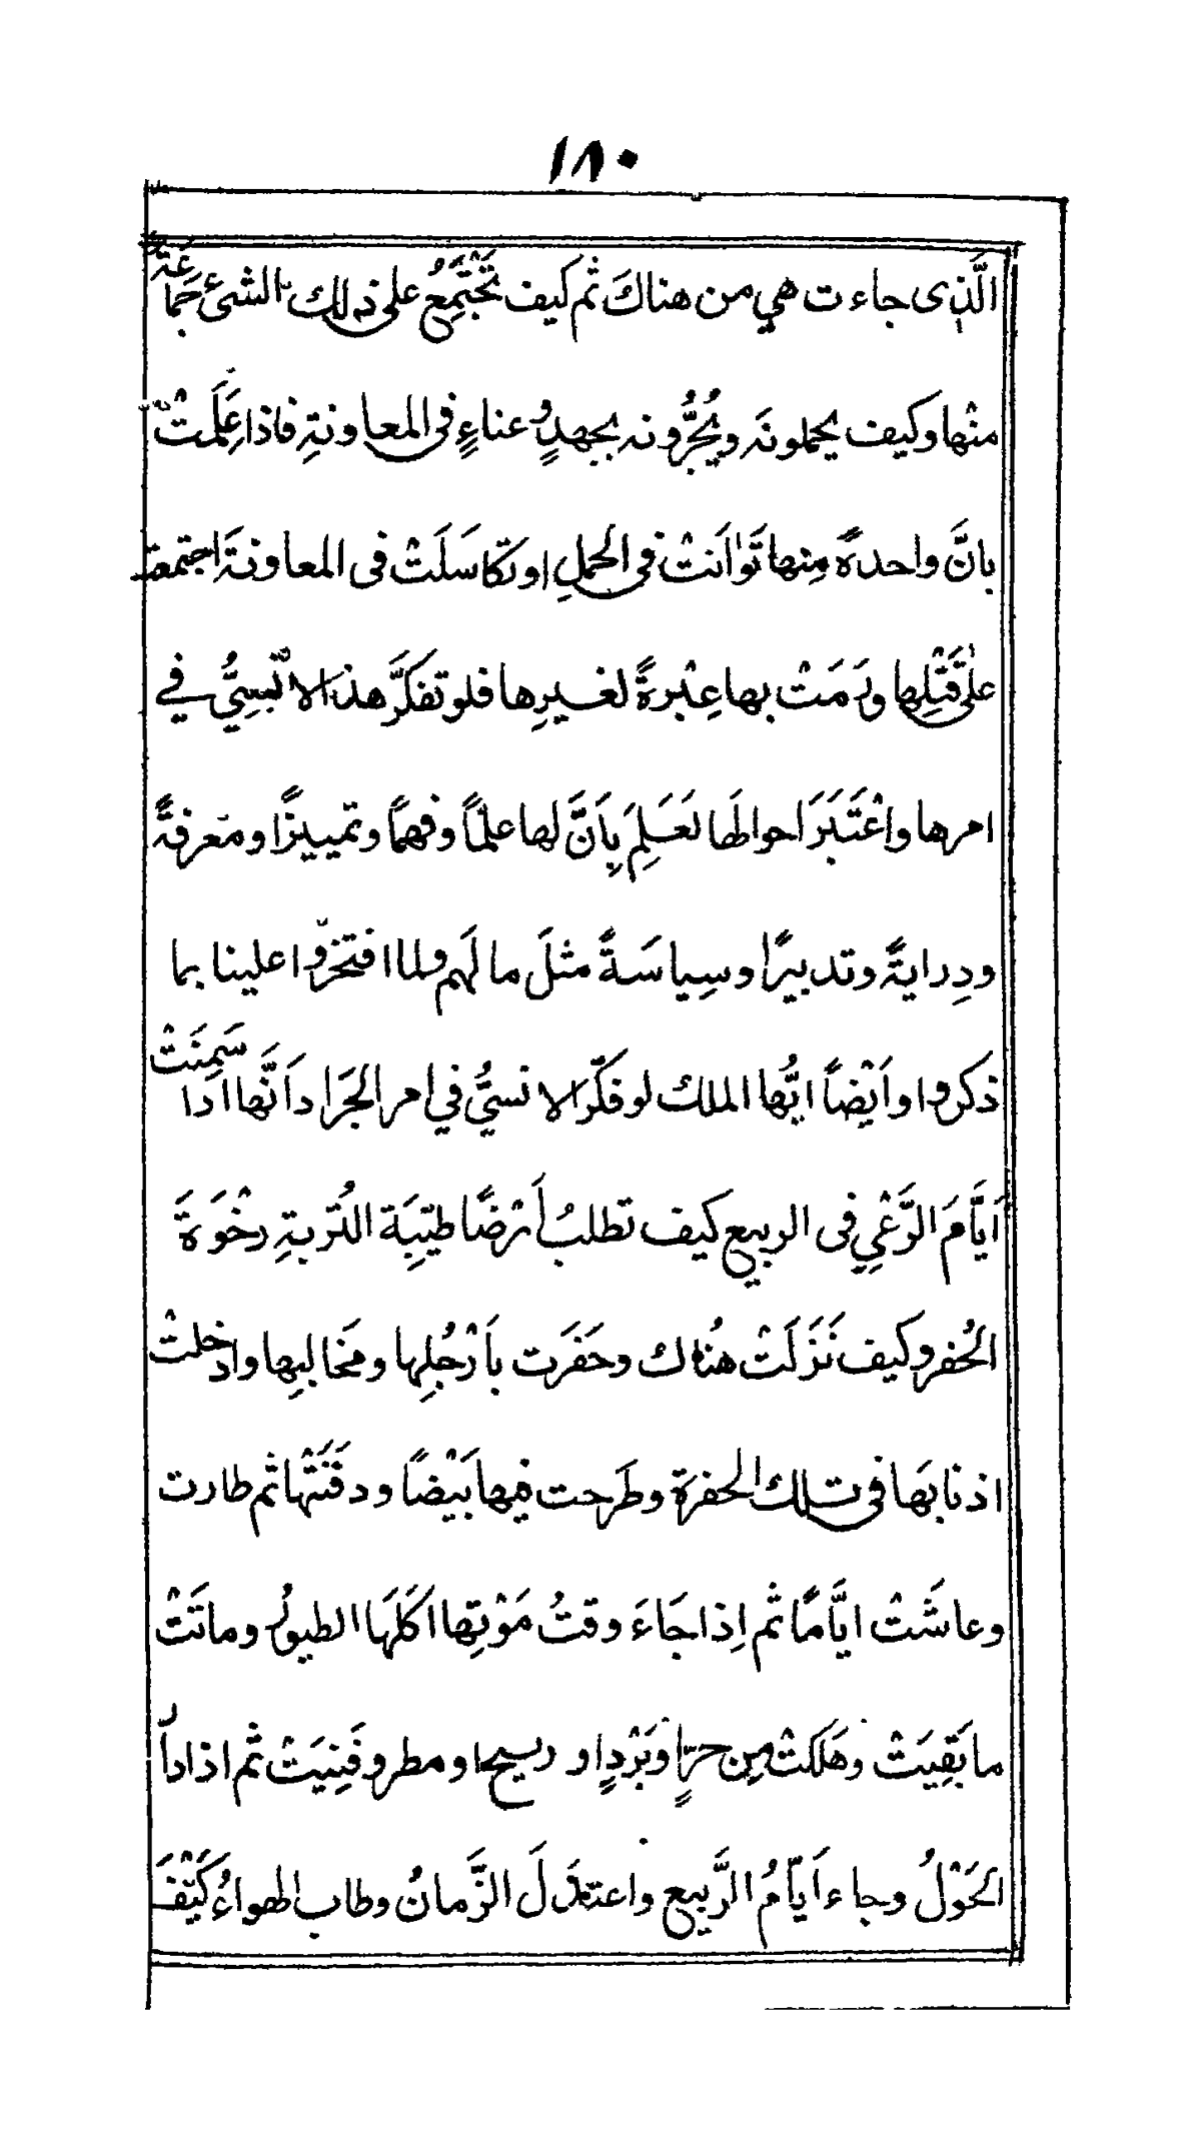 ١٨٠
الَّذى جاءت هي من هناكَ ثم كيف تَجْتَمِعُ على ذلك الشئ جَماعَةٌ
منْها وكيف يحملونَه ويُجُرُّونه بجهدٍ وعناءٍ فى المعاونةِ فاذا عَلِمَتْ
بانَّ واحدةً مِنها تَوانَتْ فى الحملِ او تكاسَلَتْ فى المعاونةَ اجتمعت
على قَتْلِها ورَمَتْ بها عِبْرةً لغيرِها فلو تفكَّر هذا الانسِيُّ في
امرها واعْتَبَرَ احوالَها لعَلِمَ بِاَنَّ لها علمًا وفهمًا وتمييزًا ومَعرفةً
ودِرايةً وتدبيرًا وسِياسَةً مثلَ ما لَهم ولما افتخرُوا علينا بما
ذكروا واَيْضاً ايُّها الملك لو فكّر الانسيُّ في امر الجَراد اَنَّها اذا سَمِنَتْ
اَيَّامَ الرَّعْيِ فى الربيع كيف تطلبُ أرْضًا طيّبَة التُربةِ رخْوَةَ
الحُفر وكيف نَزَلَتْ هُناك وحَفَرَت باَرْجُلِها ومَخالبِها وادخلتْ
اذنابَها فى تلك الحفرة وطَرحت فيها بَيْضًا ودفَنَتْها ثم طارت
وعاشَتْ ايَّامًا ثم اِذا جَاءَ وقتُ مَوْتِها اكَلَهَا الطيورُ وماتَتْ
ما بَقِيَتْ وهَلَكتْ مِن حرٍّ اوبَرْدٍ او ريح او مطر وفَنِيَتْ ثم اذا دارَ
الحَوْلُ وجاء اَيّامُ الرَّبيع واعتدَلَ الزَّمانُ وطاب الهواءُ كَيْفَ